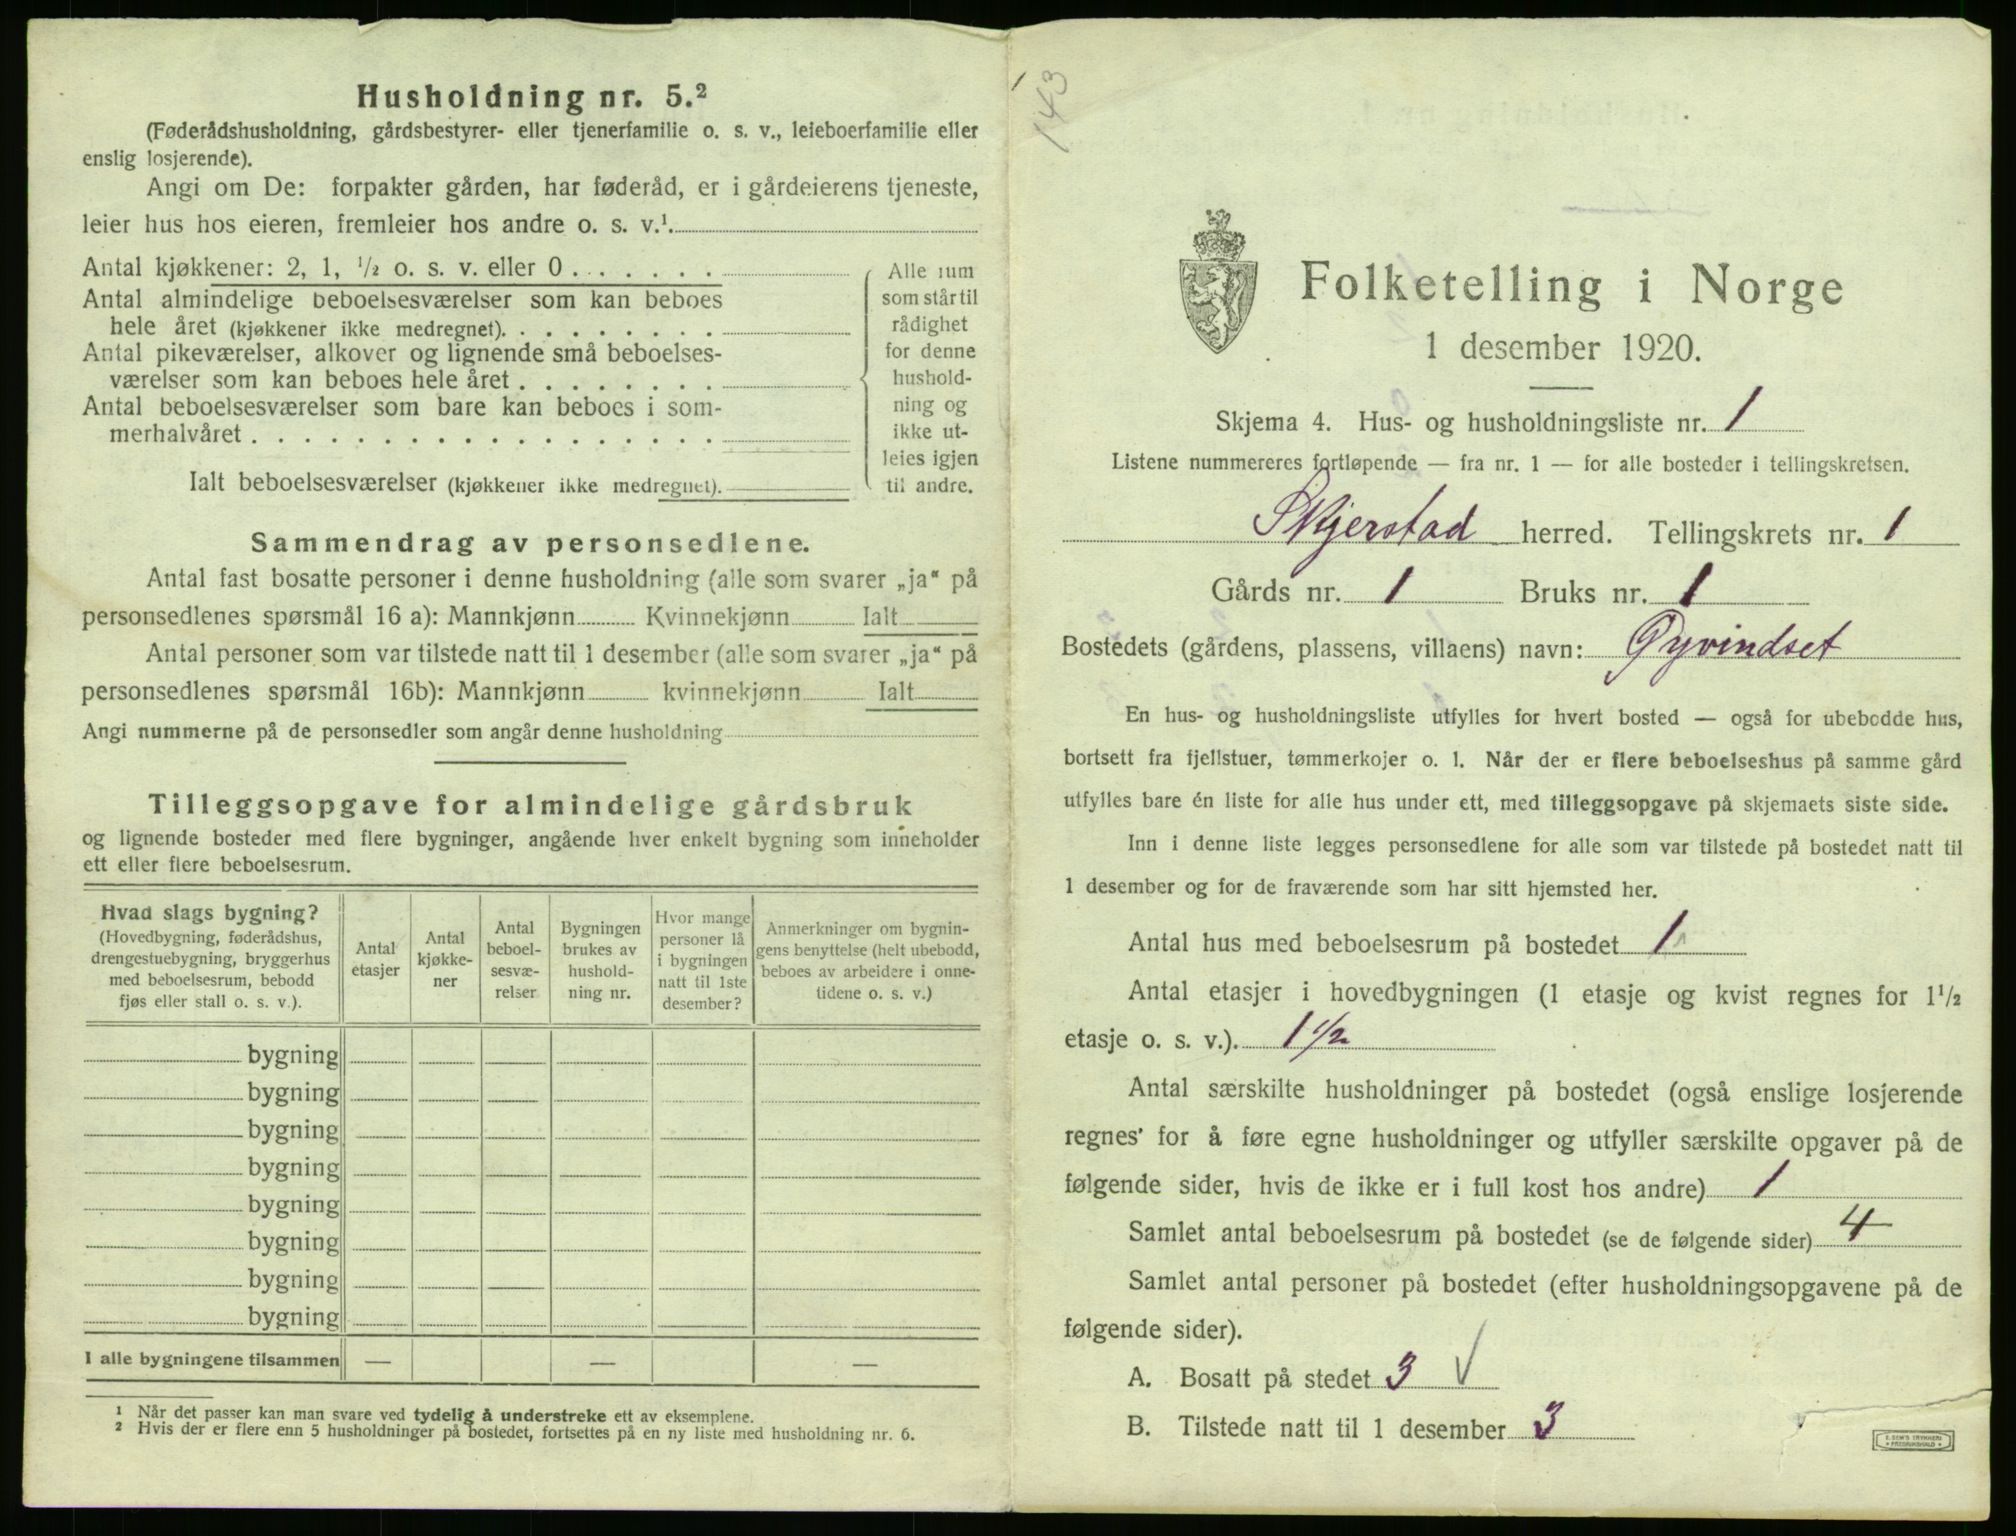 Husholdning nr. 5.²
(Føderådshusholdning, gårdsbestyrer- eller tjenerfamilie o. s. v., leieboerfamilie eller
enslig losjerende).
Angi om De: forpakter gården, har føderåd, er i gårdeierens tjeneste,
leier hus hos eieren, fremleier hos andre o. s. v.¹.
Antal kjøkkener: 2, 1, ½ o. s. v. eller 0 . . . . . .
Antal almindelige beboelsesværelser som kan beboes
hele året (kjøkkener ikke medregnet). . . . . . . . .
Antal pikeværelser, alkover og lignende små beboelses-
værelser som kan beboes hele året . . . . . . . .
Antal beboelsesværelser som bare kan beboes i som-
merhalvåret . . . . . . . . . . . . . . . . . .
Ialt beboelsesværelser (kjøkkener ikke medregnet).
Alle rum
som står til
rådighet
for denne
hushold-
ning og
ikke ut-
leies igjen
til andre.
Sammendrag av personsedlene.
Antal fast bosatte personer i denne husholdning (alle som svarer „ja“ på
personsedlenes spørsmål 16 a): Mannkjønn Kvinnekjønn Ialt
Antal personer som var tilstede natt til 1 desember (alle som svarer „ja“ på
personsedlenes spørsmål 16b): Mannkjønn kvinnekjønn Ialt
Angi nummerne på de personsedler som angår denne husholdning
Tilleggsopgave for almindelige gårdsbruk
og lignende bosteder med flere bygninger, angående hver enkelt bygning som inneholder
ett eller flere beboelsesrum.
Hvad slags bygning?
(Hovedbygning, føderådshus,
drengestuebygning, bryggerhus
med beboelsesrum, bebodd
fjøs eller stall o. s. v.).
Antal
etasjer
Antal
kjøkke-
ner
Antal
beboel-
sesvæ-
relser
Bygningen
brukes av
hushold-
ning nr.
Hvor mange
personer lå
i bygningen
natt til 1ste
desember?
Anmerkninger om bygnin-
gens benyttelse (helt ubebodd,
beboes av arbeidere i onne-
tidene o. s. v.)
bygning
bygning
bygning
bygning
bygning
bygning
bygning
bygning
I alle bygningene tilsammen — — —
¹ Når det passer kan man svare ved tydelig å understreke ett av eksemplene.
² Hvis der er flere enn 5 husholdninger på bostedet, fortsettes på en ny liste med husholdning nr. 6.
143
Folketelling i Norge
1 desember 1920.
Skjema 4. Hus- og husholdningsliste nr. 1
Listene nummereres fortløpende — fra nr. 1 — for alle bosteder i tellingskretsen.
Skjerstad herred. Tellingskrets nr. 1
Gårds nr. 1 Bruks nr. 1
Bostedets (gårdens, plassens, villaens) navn: Øyvindset
En hus- og husholdningsliste utfylles for hvert bosted — også for ubebodde hus,
bortsett fra fjellstuer, tømmerkojer o. l. Når der er flere beboelseshus på samme gård
utfylles bare én liste for alle hus under ett, med tilleggsopgave på skjemaets siste side.
Inn i denne liste legges personsedlene for alle som var tilstede på bostedet natt til
1 desember og for de fraværende som har sitt hjemsted her.
Antal hus med beboelsesrum på bostedet 1
Antal etasjer i hovedbygningen (1 etasje og kvist regnes for 1½
etasje o. s. v.). 1 ½
Antal særskilte husholdninger på bostedet (også enslige losjerende
regnes' for å føre egne husholdninger og utfyller særskilte opgaver på de
følgende sider, hvis de ikke er i full kost hos andre) 1
Samlet antal beboelsesrum på bostedet (se de følgende sider) 4
Samlet antal personer på bostedet (efter husholdningsopgavene på de
følgende sider).
A. Bosatt på stedet 3 √
B. Tilstede natt til 1 desember 3
E. SEM'S TRYKKERI
• FREDRIKSHALD •